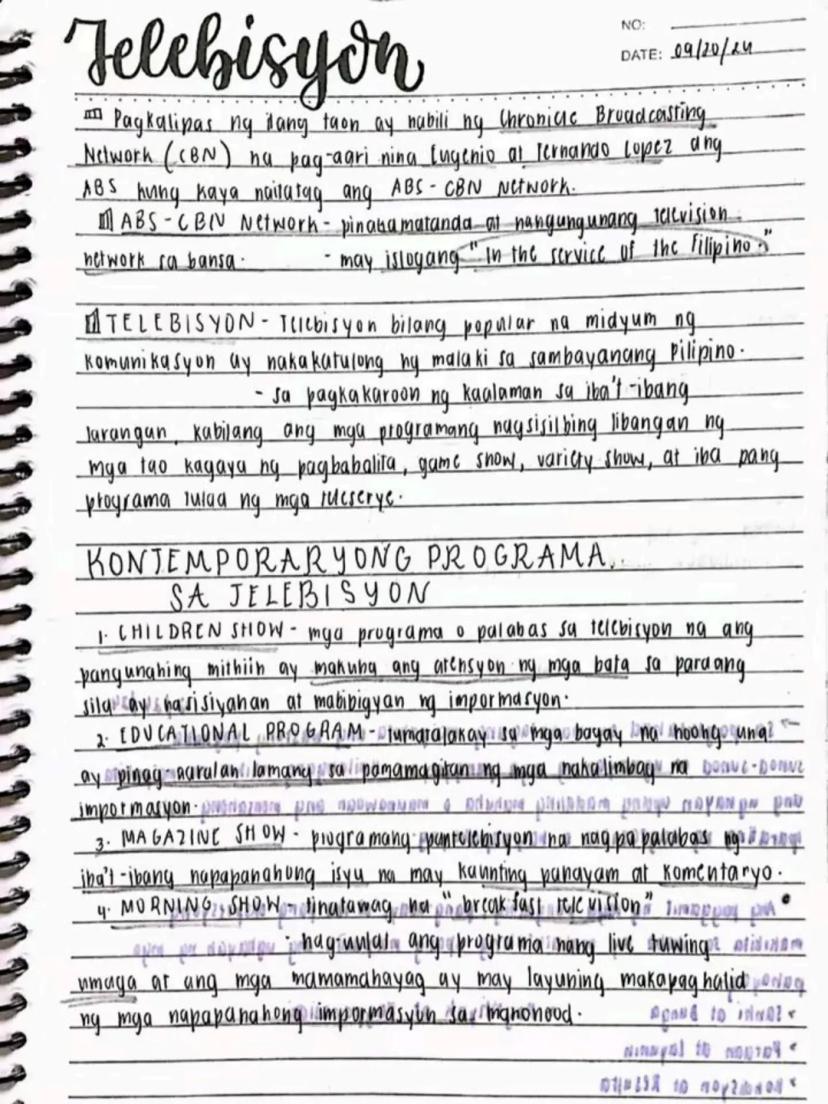 Telebisyon
NO:
DATE: 09/20/24
Pagkalipas ng ilang taon ay nabili ng Chronicle Broadcasting
Network (CBN) na pag-aari nina Eugenio at Fernando Lopez ang
ABS kung kaya naitatag ang ABS-CBN Network.
ABS-CBN Network - pinakamatanda at nangungunang television
network sa bansa. - may islogang "in the service of the Filipino."
TELEBISYON - Telebisyon bilang popular na midyum ng
komunikasyon ay nakakatulong ng malaki sa sambayanang Pilipino.
- sa pagkakaroon ng kaalaman sa iba't-ibang
larangan, kabilang ang mga programang nagsisilbing libangan ng
mga tao kagaya ng pagbabalita, game show, variety show, at iba pang
programa tulad ng mga teleserye.
KONTEMPORARYONG PROGRAMA
SA TELEBISYON
1. CHILDREN SHOW - mga programa o palabas sa telebisyon na ang
pangunahing mithiin ay makuha ang atensyon ng mga bata sa paraang
sila ay nasisiyahan at mabibigyan ng impormasyon.
2. EDUCATIONAL PROGRAM - tumatalakay sa mga bagay na noong una
ay pinag-aaralan lamang sa pamamagitan ng mga nakalimbag na
impormasyon.
3. MAGAZINE SHOW - programang pantelebisyon na nagpapalabas ng
iba't-ibang napapanahong isyu na may kaunting panayam at komentaryo.
4. MORNING SHOW - tinatawag na "breakfast television"
- nag-uulat ang programa nang live tuwing
umaga at ang mga mamamahayag ay may layuning makapaghatid
ng mga napapanahong impormasyun sa manonood.